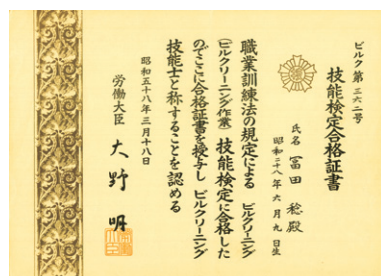 ビルク第三六二号
技能検定合格証書
氏名 冨田 稔殿
昭和二十八年六月九日生
職業訓練法の規定による ビルクリーニング
(ビルクリーニング作業) 技能検定に合格した
のでここに合格証書を授与し ビルクリーニング
技能士と称することを認める
昭和五十八年三月十八日
労働大臣 大野 明